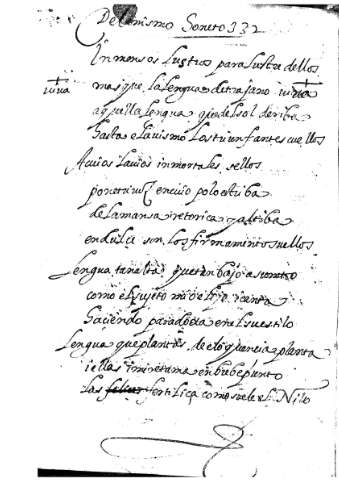 Del mismo Soneto 332
Inmensos lustros para lustre dellos
mas que la lengua de trajano viva
viva
aquella lengua que del sol deriba
hasta el avismo los triunfantes cuellos
A cuios lavios inmortales sellos
pone en cuio polo estriba
de la mansa retorica y altiba
en dulçi son los firmamentos vellos
Lengua tan alta que tan bajo
como el sujeto mio
Haciendo paradoxa en el su estilo
Lengua que plantas de eloquencia planta
i ellas in en un punto
las fertiliça como suele el Nilo